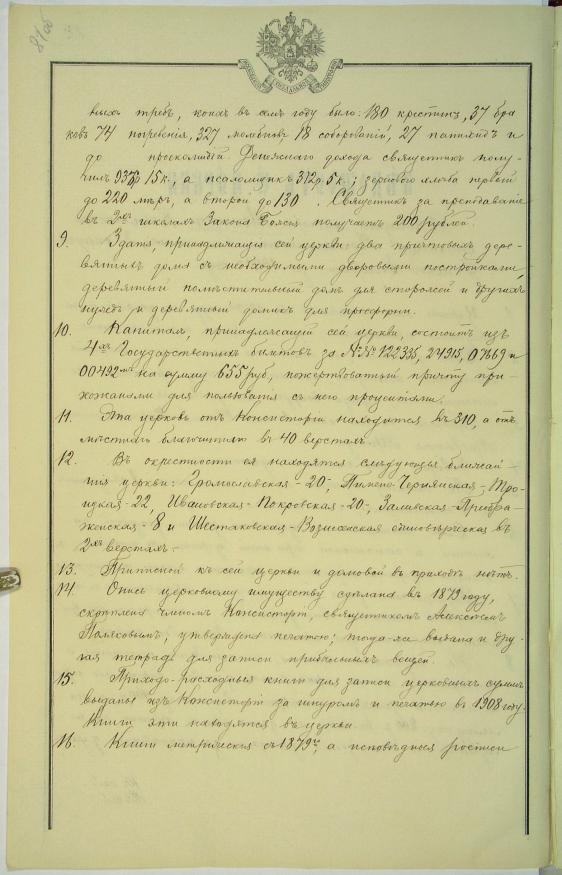 81 об
выхъ требъ, коихъ въ семъ году было: 180 крестинъ, 37 бра
ковъ 74 погребенія, 327 молебновъ 18 соборованій, 27 панихидъ и
до проскомидій. Денежнаго дохода священникъ полу-
чилъ 937р 15к., а псаломщикъ 312р. 5к.; зерноваго хлѣба первый
до 220 мѣръ, а второй до 130. Священникъ за преподаваніе
въ 2хъ школахъ Закона Божія получаетъ 200 рублей.
9. Зданія, принадлежащія сей церкви: два причтовыхъ дере-
вянныхъ дома съ необходимыми дворовыми постройками,
деревянный помѣстительный домъ для сторожей и другихъ
нуждъ и деревянный домикъ для просфорни.
10. Капиталъ, принадлежащій сей церкви, состоитъ изъ
4хъ Государственныхъ билетовъ за №№ 122335, 24915, 07669 и
00492 на сумму 655 руб, пожертвованный причту при-
хожанами для пользованія съ него процентами.
11. Эта церковь отъ Консисторіи находится въ 310, а отъ
мѣстнаго благочиннаго въ 40 верстахъ.
12. Въ окрестности ея находятся слѣдующія ближай-
шія церкви: Громославская - 20, Чернянская - Тро-
ицкая - 22, Ивановская - Покровская - 20, Заливская - Преобра-
женская - 8 и Шестаковская - Вознесенская единовѣрческая въ
2хъ верстахъ.-
13. Приписной къ сей церкви и домовой въ приходѣ нѣтъ.
14. Опись церковному имуществу сдѣлана въ 1879 году,
скрѣплена членомъ Консисторіи, священникомъ Алексѣемъ
Поляковымъ; утверждена печатью; тогда-же выдана и дру-
гая тетрадь для записи прибыльныхъ вещей.
15. Приходо-расходныя книги для записи церковныхъ суммъ
выданы изъ Консисторіи за шнуромъ и печатью въ 1908 году.
Книги эти находятся въ церкви
16. Книги метрическія съ 1879 г, а исповѣдныя росписи